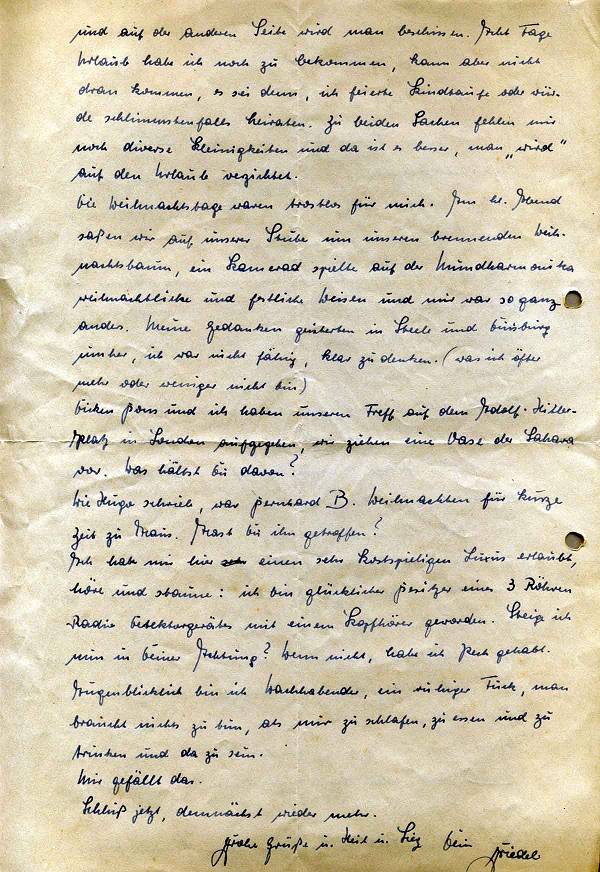 und auf der anderen Seite wird man beschissen. Acht Tage
Urlaub habe ich noch zu bekommen, kann aber nicht
dran kommen, es sei denn, ich feierte Kindtaufe oder wür-
de schlimmstenfalls heiraten. Zu beiden Sachen fehlen mir
noch diverse Kleinigkeiten und da ist es besser, man „wird"
auf den Urlaub verzichtet.
Die Weihnachtstage waren trostlos für mich. Am hl. Abend
saßen wir auf unserer Stube um unseren brennenden Weih-
nachtsbaum, ein Kamerad spielte auf der Mundharmonika
weihnachtliche und festliche Weisen und mir war so ganz
anders. Meine Gedanken geisterten in Steele und Duisburg
umher, ich war nicht fähig, klar zu denken. (was ich öfter
mehr oder weniger nicht bin)
und ich haben unseren Treff auf dem Adolf-Hitler-
platz in London aufgegeben, wir ziehen eine Oase der Sahara
vor. Was hältst Du davon?
Wie Hugo schrieb, war Bernhard B. Weihnachten für kurze
Zeit zu Haus. Hast Du ihn getroffen?
Ich hab mir hier einen sehr kostspieligen Luxus erlaubt,
höre und staune: ich bin glücklicher Besitzer eines 3 Röhren
-Radio Detektorgerätes mit einem Kopfhörer geworden. Steige ich
nun in Deiner Achtung? Wenn nicht, habe ich Pech gehabt.
Augenblicklich bin ich Wachhabender, ein ruhiger Tuck, man
braucht nichts zu tun, als nur zu schlafen, zu essen und zu
trinken und da zu sein.
Mir gefällt das.
Schluß jetzt, demnächst wieder mehr.
Frohe Grüße u. Heil u. Sieg Dein Friedel